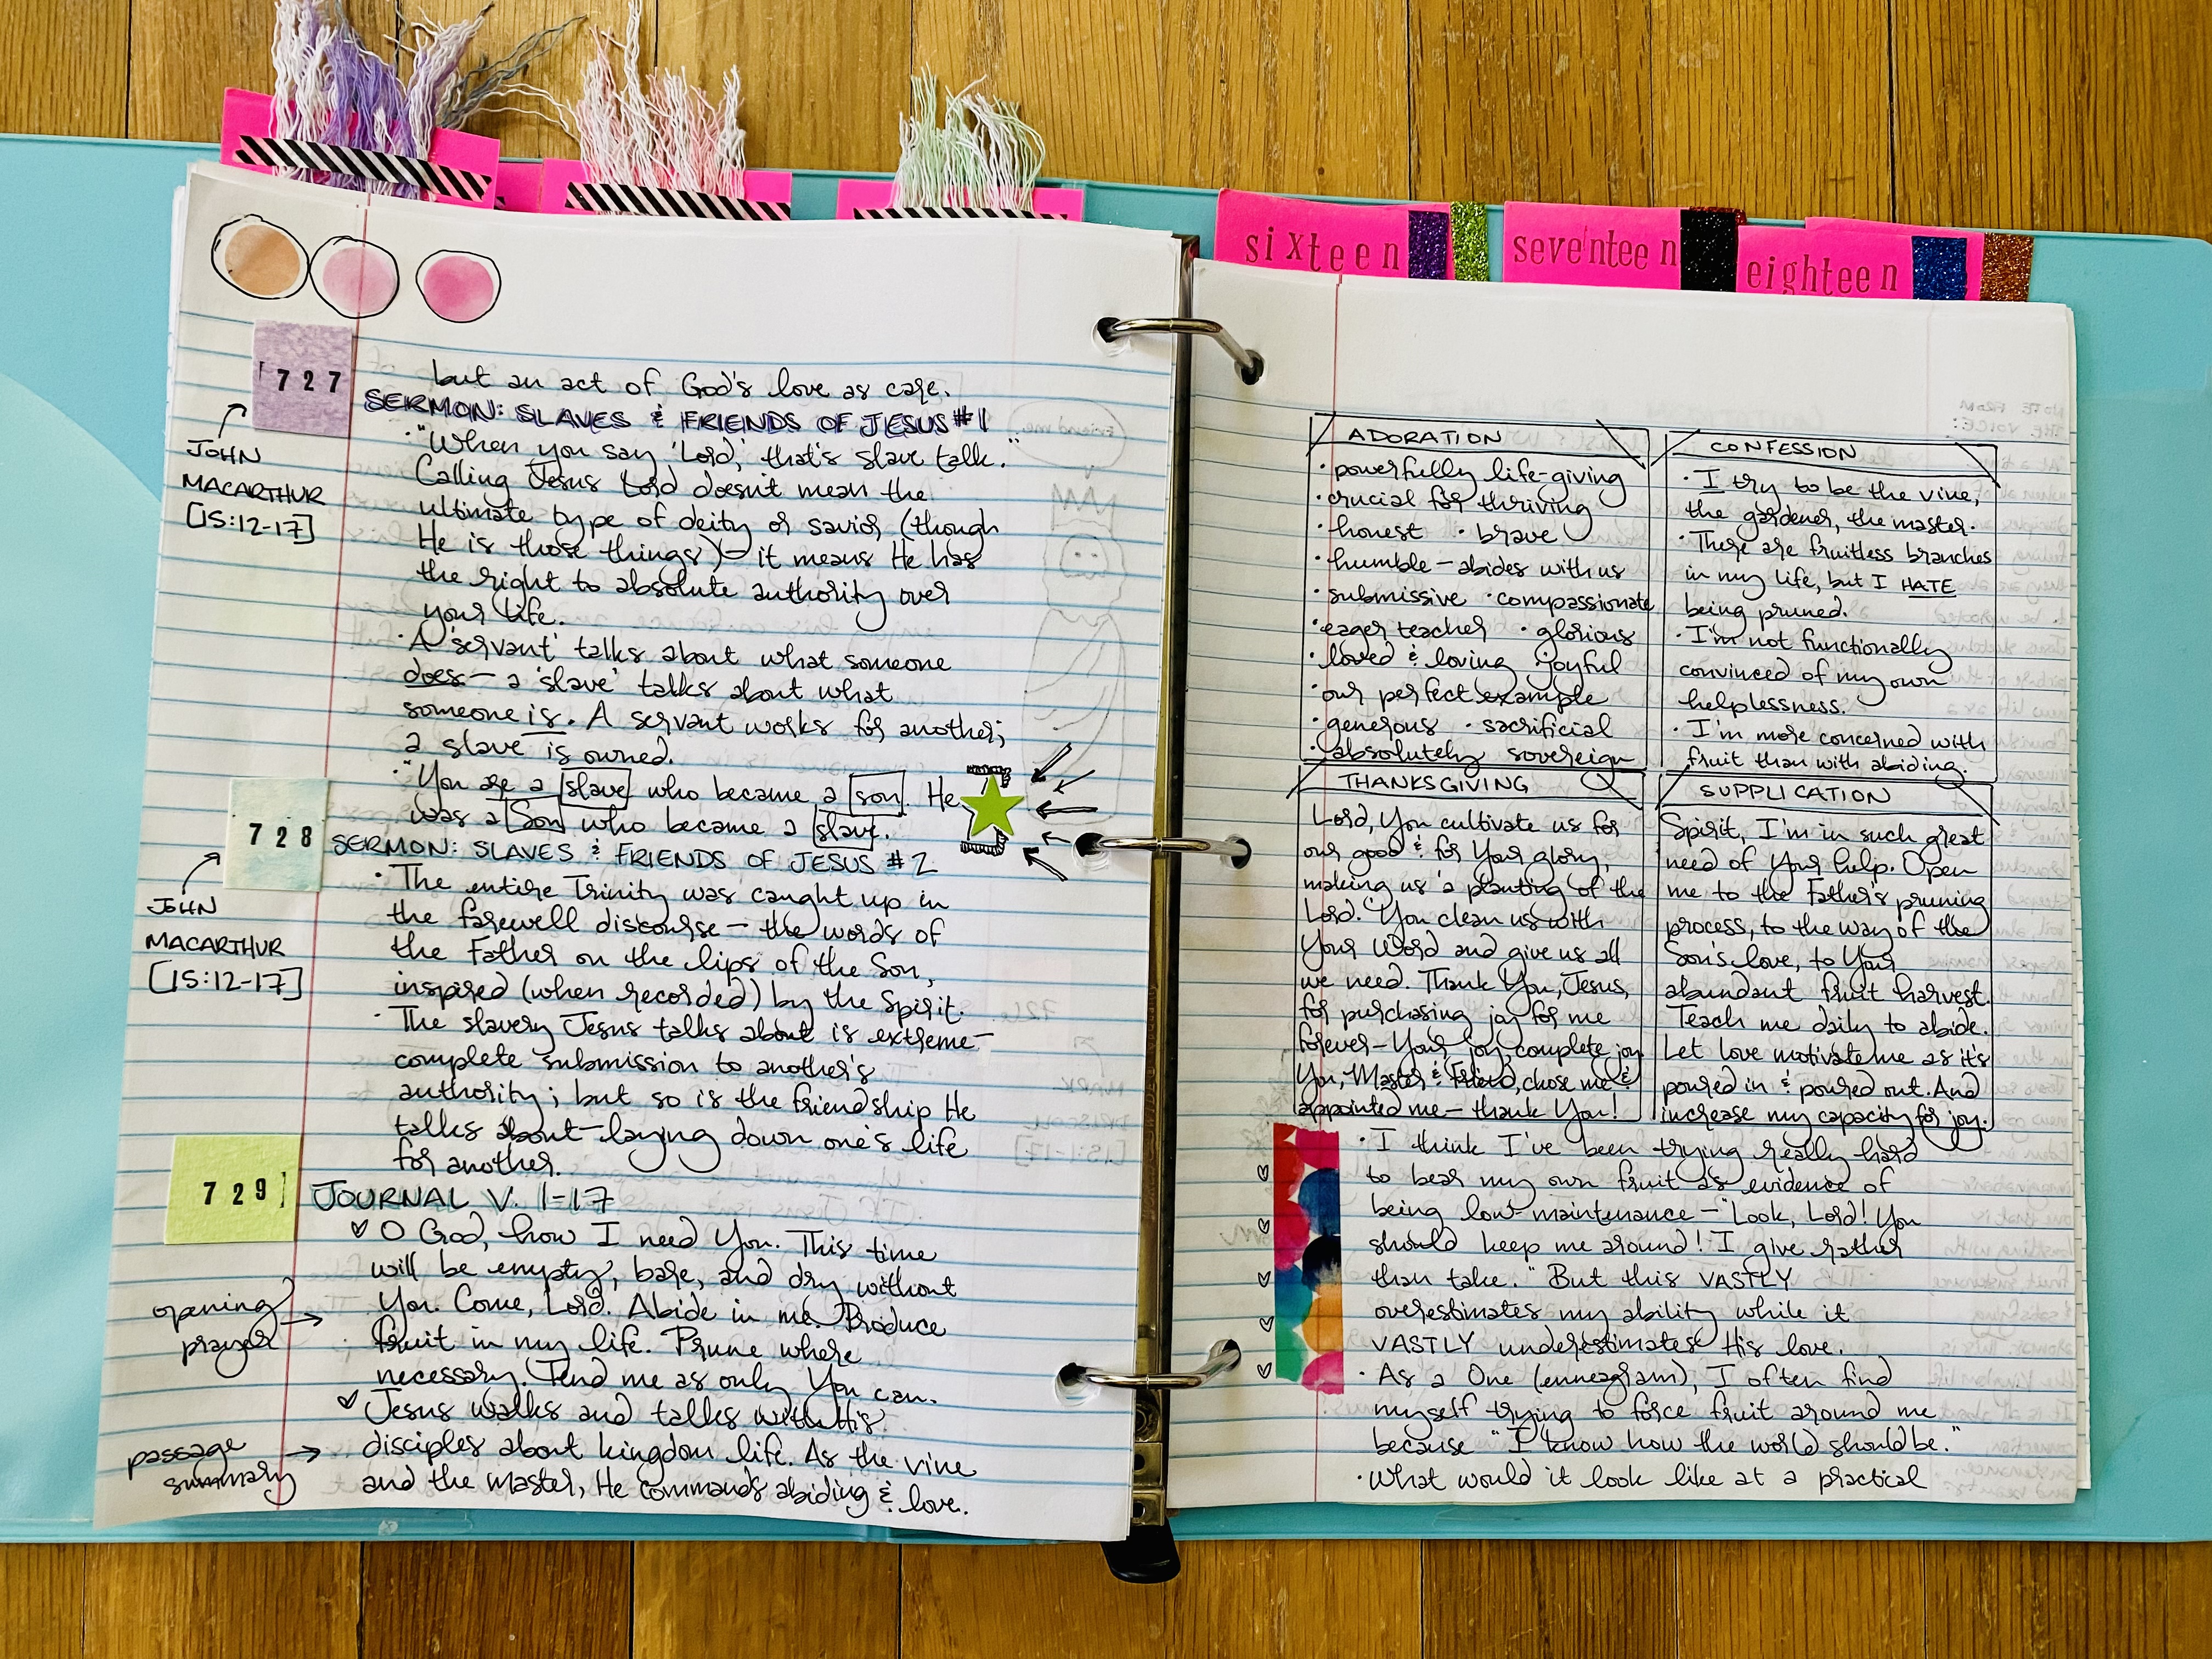 sixteen
seventeen
eighteen
727
but an act of God's love as care.
SERMON: SLAVES & FRIENDS OF JESUS #1
JOHN
MACARTHUR
[15:12-17]
· "When you say 'Lord,' that's slave talk."
Calling Jesus Lord doesn't mean the
ultimate type of deity or savior (though
He is those things) – it means He has
the right to absolute authority over
your life.
· A 'servant' talks about what someone
does – a 'slave' talks about what
someone is. A servant works for another;
a slave is owned.
· "You are a slave who became a son. He
was a Son who became a slave."
728
SERMON: SLAVES & FRIENDS OF JESUS #2
JOHN
MACARTHUR
[15:12-17]
· The entire Trinity was caught up in
the farewell discourse – the words of
the Father on the lips of the Son,
inspired (when recorded) by the Spirit.
· The slavery Jesus talks about is extreme –
complete submission to another's
authority; but so is the friendship He
talks about – laying down one's life
for another.
729
JOURNAL V. 1-17
opening
prayer
♡ O God, how I need You. This time
will be empty, bare, and dry without
You. Come, Lord. Abide in me. Produce
fruit in my life. Prune where
necessary. Tend me as only You can.
passage
summary
♡ Jesus walks and talks with His
disciples about kingdom life. As the vine
and the master, He commands abiding & love.
ADORATION
· powerfully life-giving
· crucial for thriving
· honest · brave
· humble – abides with us
· submissive · compassionate
· eager teacher · glorious
· loved & loving · joyful
· our perfect example
· generous · sacrificial
· absolutely sovereign
CONFESSION
· I try to be the vine,
the gardener, the master.
· There are fruitless branches
in my life, but I HATE
being pruned.
· I'm not functionally
convinced of my own
helplessness.
· I'm more concerned with
fruit than with abiding.
THANKSGIVING
Lord, You cultivate us for
our good & for Your glory,
making us 'a planting of the
Lord.' You clean us with
Your Word and give us all
we need. Thank You, Jesus,
for purchasing joy for me
forever – Your joy, complete joy.
You, Master & Friend, chose me &
appointed me – thank You!
SUPPLICATION
Spirit, I'm in such great
need of Your help. Open
me to the Father's pruning
process, to the way of the
Son's love, to Your
abundant fruit harvest.
Teach me daily to abide.
Let love motivate me as it's
poured in & poured out. And
increase my capacity for joy.
· I think I've been trying really hard
to bear my own fruit as evidence of
being low-maintenance – "Look, Lord! You
should keep me around! I give rather
than take." But this VASTLY
overestimates my ability while it
VASTLY underestimates His love.
· As a One (enneagram), I often find
myself trying to force fruit around me
because "I know how the world should be."
· What would it look like at a practical